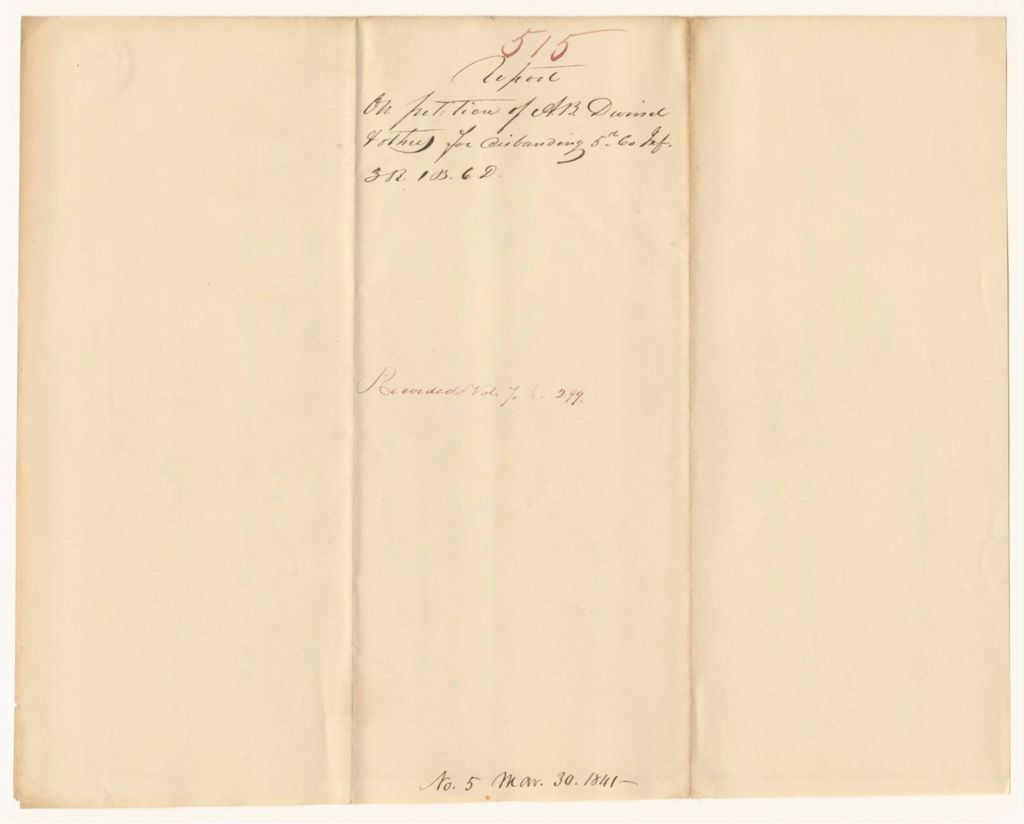 515
Report
On petition of A B Daniel
& others for disbanding 5th Co Inf.
3 R. 1 B. 6 D.
Recorded Vol. 7. p. 299.
No. 5 Mar. 30. 1841—